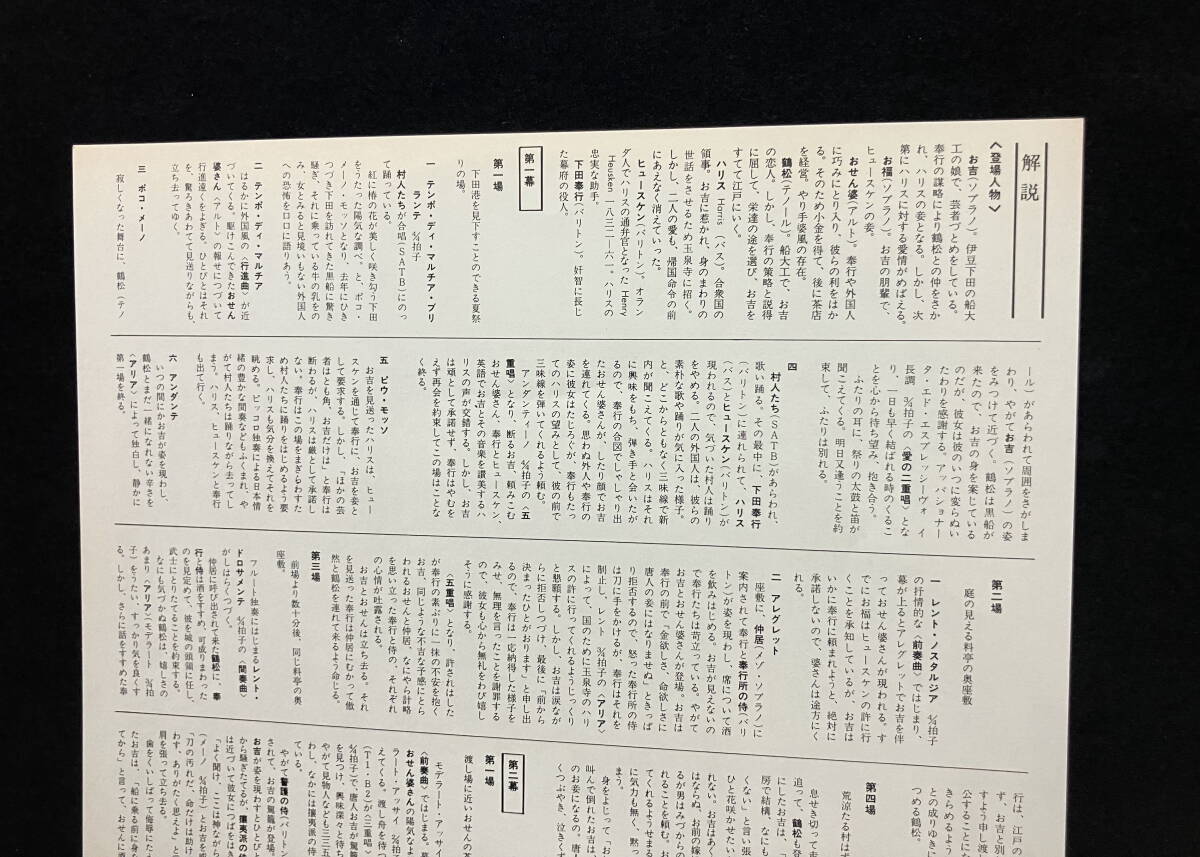 解説
〈登場人物〉
お吉（ソプラノ）。伊豆下田の船大
工の娘で、芸者づとめをしている。
奉行の謀略により鶴松との仲をさか
れ、ハリスの妾となる。しかし、次
第にハリスに対する愛情がめばえる。
お福（ソプラノ）。お吉の朋輩で、
ヒュースケンの妾。
おせん婆（アルト）。奉行や外国人
に巧みにとり入り、彼らの利をはか
る。そのため小金を得て、後に茶店
を経営。やり手婆風の存在。
鶴松（テノール）。船大工で、お吉
の恋人。しかし、奉行の策略と説得
に屈して、栄達の途を選び、お吉を
すてて江戸にいく。
ハリス Harris（バス）。合衆国の
領事。お吉に惹かれ、身のまわりの
世話を させるため玉泉寺に招く。
しかし、二人の愛も、帰国命令の前
にあえなく消えていった。
ヒュースケン（バリトン）。オラン
ダ人でハリスの通弁官となった Henry
Heusken 一八三二―六一。ハリスの
忠実な助手。
下田奉行（バリトン）。奸智に長じ
た幕府の役人。
第一幕
第一場
下田港を見下すことのできる夏祭
りの場。
一 テンポ・ディ・マルチア・ブリ
ランテ 2/4拍子
村人たちが合唱（SATB）にのっ
て踊っている。
紅に椿の花が美しく咲き匂う下田
をうたった陽気な調べ。と、ポコ・
メーノ・モッソとなり、去年にひき
つづき下田を訪れてきた黒船に驚き
騒ぎ、それに乗っている牛の乳をの
み、女とみると見境いもない外国人
への恐怖を口々に語りあう。
二 テンポ・ディ・マルチア
はるかに外国風の〈行進曲〉が近
づいてくる。駆けこんできたおせん
婆さん（アルト）の報せにつづいて
行進遠くをよぎる。ひとびとはそれ
を、驚ろきあわてて見送りながらも、
立ち去ってゆく。
三 ポコ・メーノ
寂しくなった舞台に、鶴松（テノ
ール）があらわれて周囲をさがしま
わり、やがてお吉（ソプラノ）の姿
をみつけて近づく。鶴松は黒船が
来たので、お吉の身を案じている
のだが、彼女は彼のいつに変らぬい
たわりを感謝する。アッパショナー
タ・エド・エスプレッシーヴォ イ
長調、3/4拍子の〈愛の二重唱〉とな
り、一日も早く結ばれる時のくるこ
とを心から待ち望み、抱き合う。
ふたりの耳に、祭りの太鼓と笛が
聞こえてくる。明日又逢うことを約
束して、ふたりは別れる。
四
村人たち（SATB）があらわれ、
歌い踊る。その最中に、下田奉行
（バリトン）に連れられて、ハリス
（バス）とヒュースケン（バリトン）が
現われるので、気づいた村人は踊り
をやめる。二人の外国人は、彼らの
素朴な歌や踊りが気に入った様子。
と、どこからともなく三味線で新
内が聞こえてくる。ハリスはそれ
に興味をもち、弾き手と会いたが
るので、奉行の合図でしゃしゃり出
たおせん婆さんが、したり顔でお吉
を連れてくる。思わぬ外人や奉行の
姿に彼女はたじろぐが、奉行もたっ
てのハリスの望みとして、彼の前で
三味線を弾いてくれるよう頼む。
アンダンティーノ 3/4拍子の〈五
重唱〉となり、断るお吉、頼みこむ
おせん婆さん、奉行とヒュースケン、
英語でお吉とその音楽を讃美するハ
リスの声が交錯する。しかし、お吉
は頑として承諾せず、奉行はやむを
えず再会を約束してこの場はことな
く終る。
五 ピウ・モッソ
お吉を見送ったハリスは、ヒュー
スケンを通じて奉行に、お吉を妾と
して要求する。しかし、「ほかの芸
者はとも角、お吉だけは」と奉行は
断わるが、ハリスは厳として承諾し
ない。奉行はこの場をまぎらわすた
め村人たちに踊りをはじめるよう要
求し、ハリスも気分を換えてそれを
眺める。ピッコロ独奏による日本情
緒の豊かな間奏などもふくまれ、や
がて村人たちは踊りながら去ってし
まう。ハリス、ヒュースケンと奉行
も出て行く。
六 アンダンテ
いつの間にかお吉が姿を現わし、
鶴松とまだ一緒になれない辛さを
〈アリア〉によって独白し、静かに
第一場を終る。
第二場
庭の見える料亭の奥座敷
一 レント・ノスタルジア 4/4拍子
の抒情的な〈前奏曲〉ではじまり、
幕が上るとアレグレットでお吉を伴
っておせん婆さんが現われる。す
でにお福はヒュースケンの許に行
くことを承知しているが、お吉は
いかに奉行に頼まれようと、絶対に
承諾しないので、婆さんは途方にく
れる。
二 アレグレット
座敷に、仲居（メゾ・ソプラノ）に
案内されて奉行と奉行所の侍（バリ
トン）が姿を現わし、席について酒
を飲みはじめる。お吉が見えないの
で奉行たちは苛立っている。やがて
お吉とおせん婆さんが登場。お吉は
奉行の前で「金欲しさ、命欲しさに
唐人の妾にはなりませぬ」ときっぱ
り拒否するので、怒った奉行所の侍
は刀に手をかけるが、奉行はそれを
制止し、レント 3/4拍子の〈アリア〉
によって、国のために玉泉寺のハリ
スの許に行ってくれるようじっくり
と懇願する。しかし、お吉は涙なが
らに拒否しつづけ、最後に「前から
決まったひとがおります」と申し出
るので、奉行は一応納得した様子を
みせ、無理を言ったことを謝罪する
ので、彼女も心から無礼をわび嬉し
そうに感謝する。
〈五重唱〉となり、許されはした
が奉行の素ぶりに一抹の不安を抱く
お吉、同じような不吉な予感にとら
われるおせんと仲居、なにやら計略
を思い立った奉行と侍の、それぞれ
の心情が吐露される。
お吉とおせんは立ち去る。それ
を見送った奉行は仲居にむかって傲
然と鶴松を連れて来るよう命じる。
第三場
前場より数十分後、同じ料亭の奥
座敷。
フルート独奏にはじまるレント・
ドロサメンテ 4/4拍子の〈間奏曲〉
がしばらくつづく。
仲居に呼び出されて来た鶴松に、奉
行と侍は酒をすすめ、可成りまわった
のを見定めて、彼を城の頭領に任じ、
武士にとりたてることを約束する。
なにも気づかぬ鶴松は、嬉しさの
あまり〈アリア〉（モデラート 3/4拍
子）をうたい、すっかり気を良くす
る。しかし、さらに話をすすめた奉
行は、江戸の
ず、お吉と別
すよう申し渡し
公することにな
きらめるよう
との成りゆきに
つめる鶴松。
第四場
荒涼たる村は
息せき切って走
追って、鶴松も登
にしたお吉は、
房で結構、なにも
くない」と言い張
ひと花咲かせたい
れない。お吉はあく
はならぬ、お前の嫁
るが男はみづから
れることを頼む。お
てくれるようするが
に気力も無く、黙っ
まう。
身をよじって「お
叫んで倒れたお吉は、
のお妾になるの。唐人
つぶやき、泣きくず
第二幕
第一場
渡し場に近いおせんの茶
モデラート・アッサイ
〈前奏曲〉ではじまる。幕
おせん婆さんの陽気なよ
ラート・アッサイ 2/4拍
てくる。渡し舟を待つ
（T1・B2）が〈三重唱〉
4/4拍子）で、唐人お吉が
を見つけ、興味深々と待ち
やがて見物人なども三三五
わし、なかには攘夷派の侍
ている。
やがて警護の侍（バリトン
されて、お吉の駕籠が登場。
お吉が姿を現わすとひとびと
から騒ぎたてるが、攘夷派の侍
は近づいて彼女につばをはき
「よく聞け、ここは神ながら
（メーノ 3/4拍子）とお吉を
「刀の汚れだ、命だけは助け
わす、ありがたく思えよ」と
肩を張って立ち去る。
歯をくいしばって侮辱にたえ
たお吉は、「船に乗る前に身を
てから」と言って、おせんに